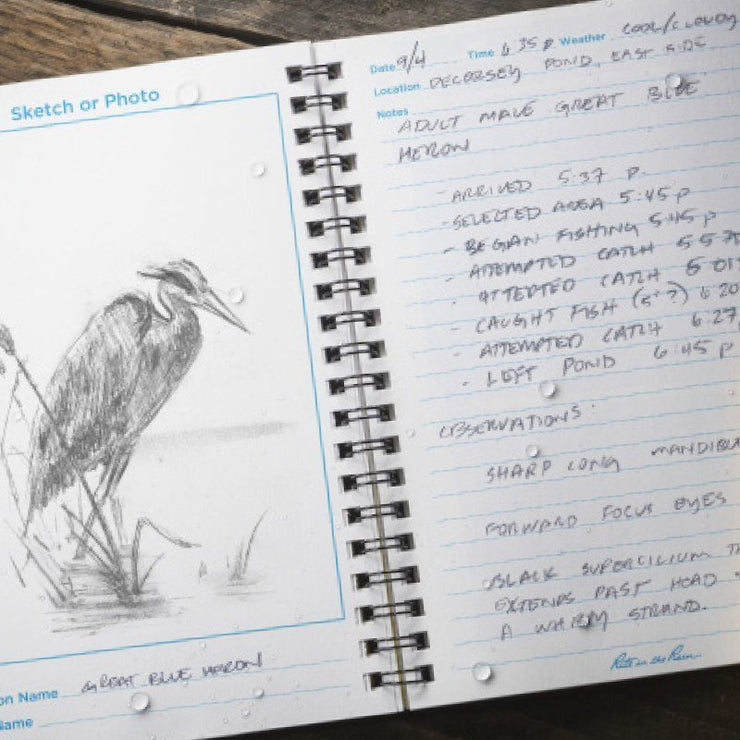 Sketch or Photo
on Name GREAT BLUE HERON
Name
Date 9/4 Time 6 35 P Weather COOL/CLOUDY
Location DECORSEY POND, EAST SIDE
Notes
ADULT MALE GREAT BLUE
HERON
- ARRIVED 5:37 P.
- SELECTED AREA 5:45 P
- BEGAN FISHING 5:45 P
- ATTEMPTED CATCH 5 57
- ATTEPTED CATCH 6 01
- CAUGHT FISH (5" ?) 6 20
- ATTEMPTED CATCH 6:27
- LEFT POND 6:45 P
OBSERVATIONS:
SHARP LONG MANDIBL
FORWARD FOCUS EYES
BLACK SUPERCILIUM TH
EXTENDS PAST HEAD
A STRAND.
Rite in the Rain